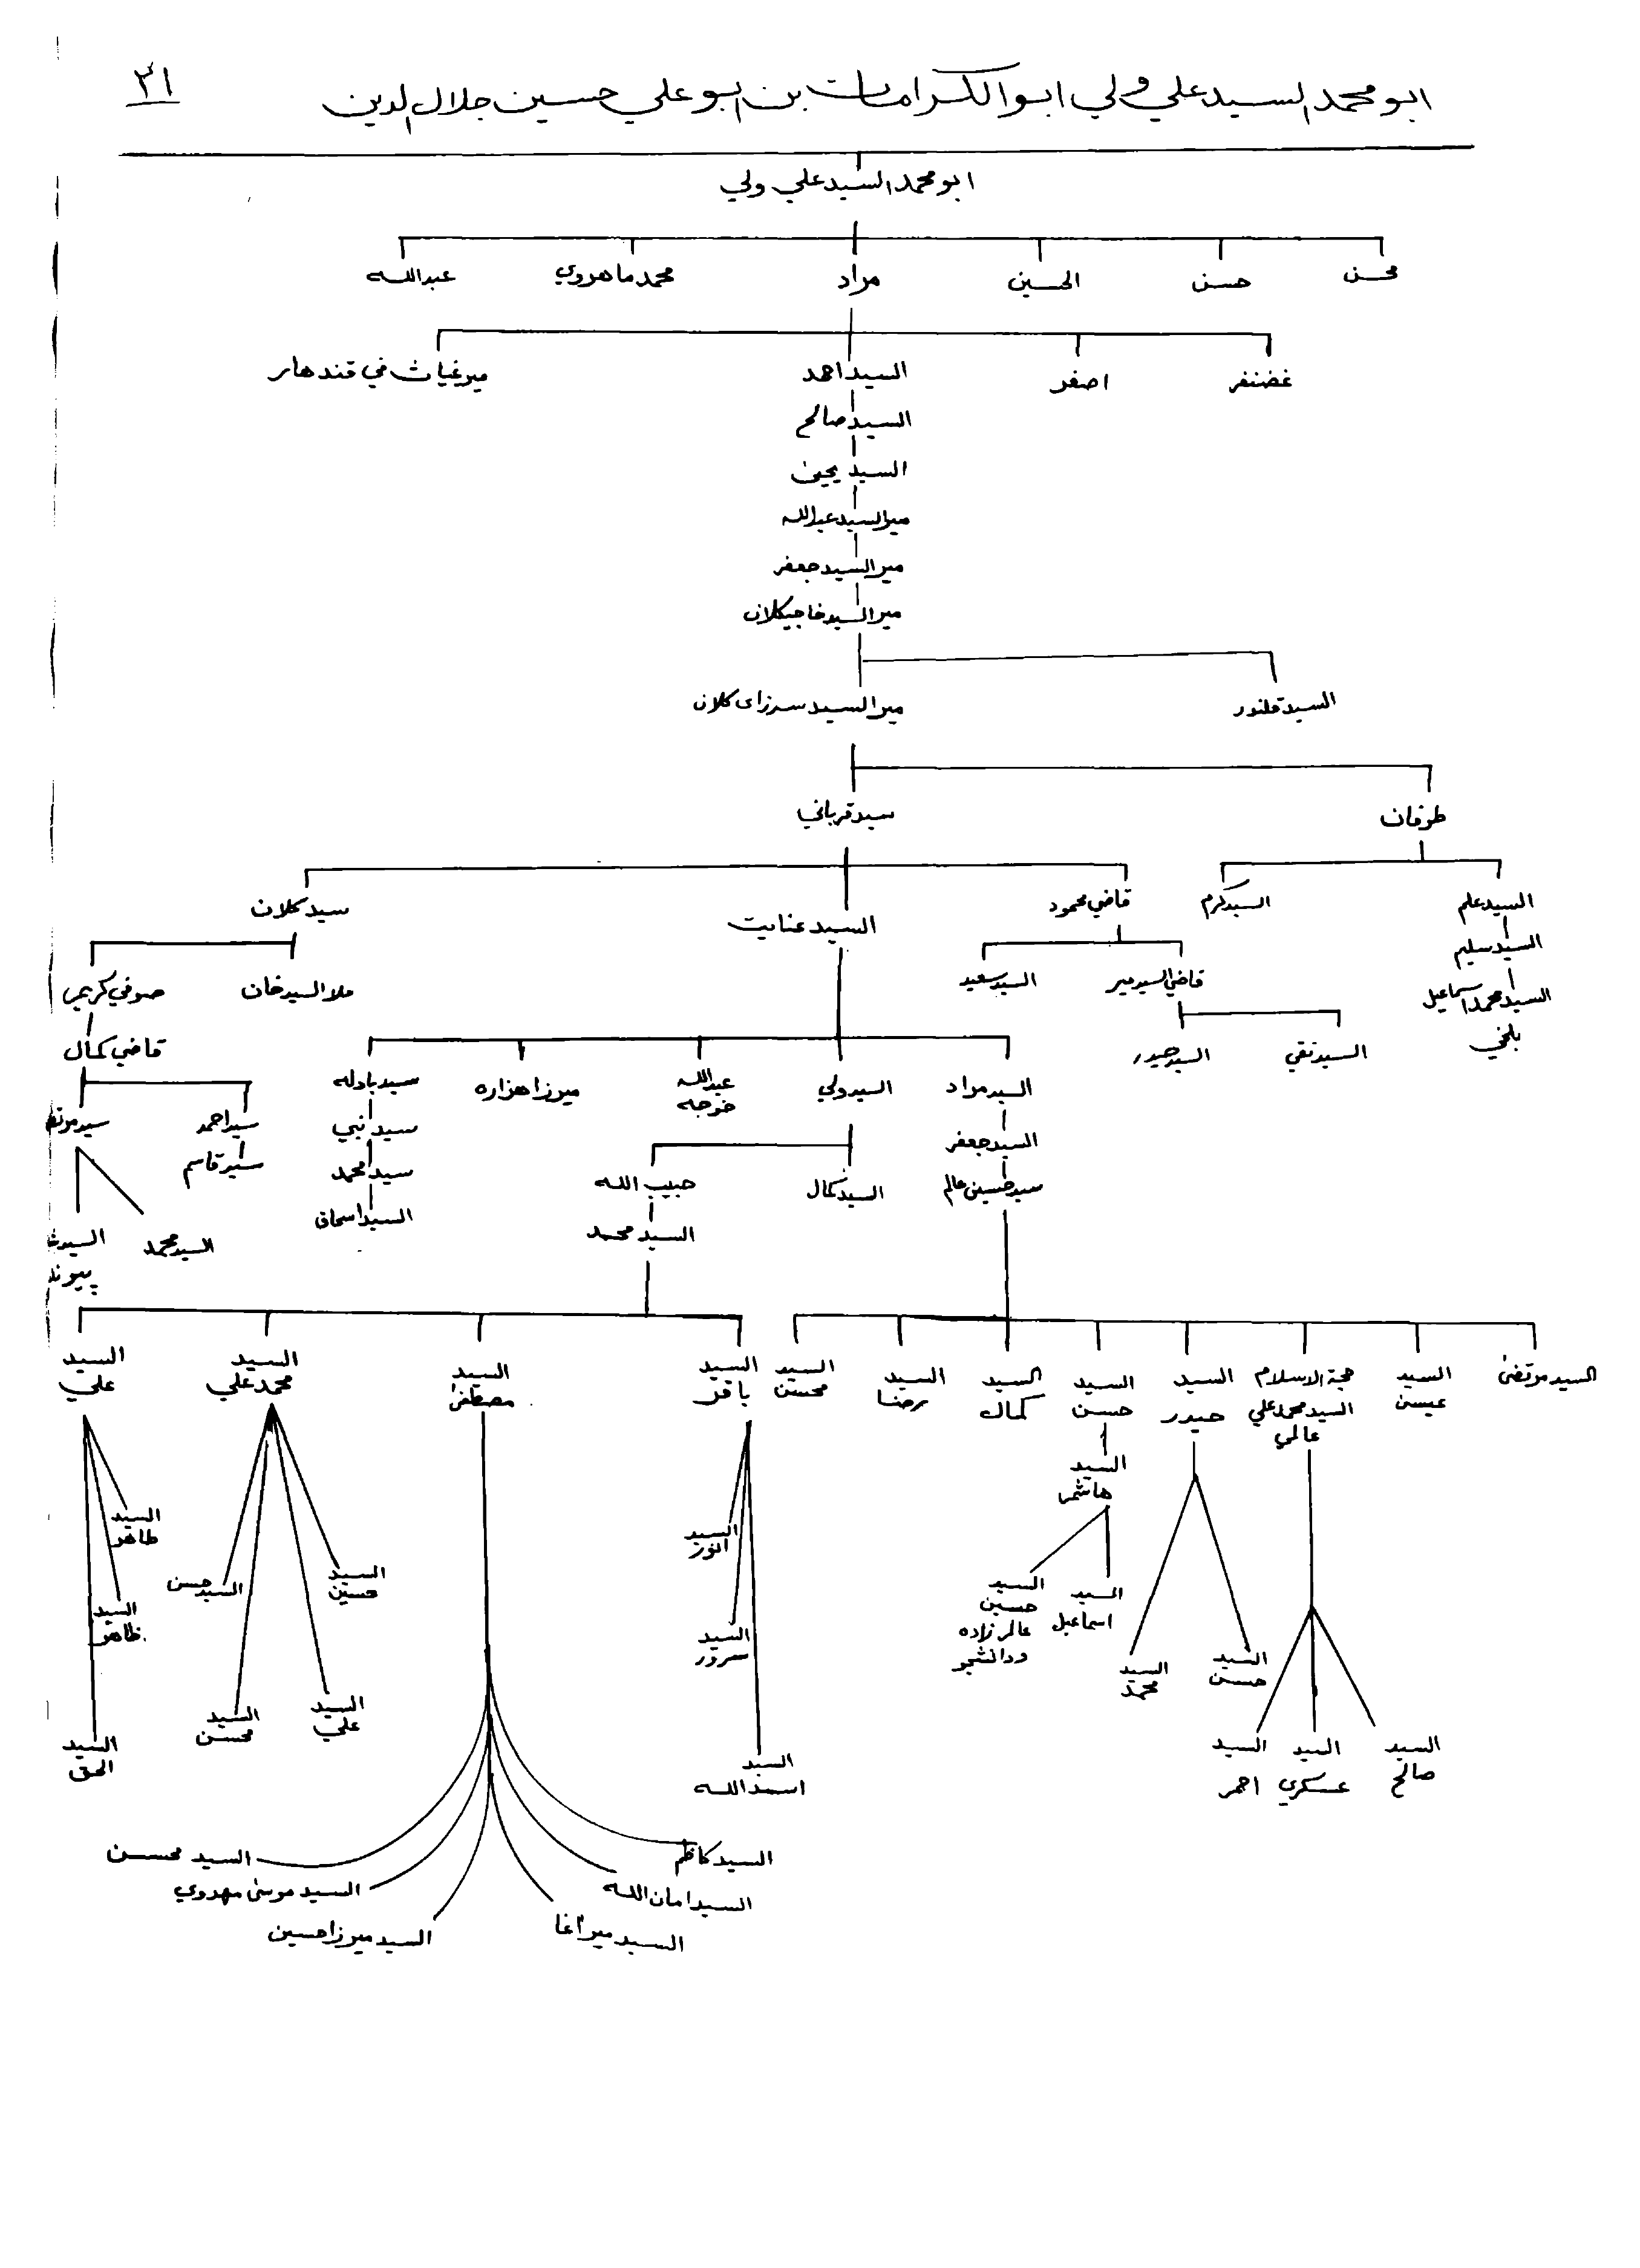 ٣١
ابو محمد السيد علي ولي ابو الكرامات بن ابو علي حسين جلال الدين
ابو محمد السيد علي ولي
محسن حسن الحسين مراد محمد ماهروي عبدالله
غضنفر اصغر السيد احمد مير غياث في قندهار
السيد صالح
السيد يحيى
مير السيد عبدالله
مير السيد جعفر
مير السيد خاجيكلان
السيد قلندر مير السيد سرزاى كلان
طوفان سيد قرباني
السيد علم السيد كرم قاضي محمود السيد عنايت سيد كلان
السيد سليم
السيد محمد اسماعيل
بلخي
قاضي السيد مير السيد سعيد ملا السيد خان صوفي كريم
السيد تقي السيد حيدر قاضي كمال
السيد مراد السيد ولي عبدالله
خوجه
ميرزا هزاره سيد بادله
سيد احمد
السيد جعفر سيد نبي
سيد قاسم
سيد حسين عالم السيد كمال حبيب الله سيد محمد
السيد محمد السيد اسحاق السيد محمد
السيد مرتضى
السيد
عيسى
حجة الاسلام
السيد محمد علي
عالمي
السيد
حيدر
السيد
حسن
السيد
كمال
السيد
رضا
السيد
محسن
السيد
باقر
السيد
مصطفى
السيد
محمد علي
السيد
علي
السيد
هاشم
السيد
اسماعيل
السيد
حسين
عالم زاده
ودانشجو
السيد
حسن
السيد
محمد
السيد
صالح
السيد
عسكري
السيد
احمر
السيد
انور
السيد
سرور
السيد
اسد الله
السيد
حسين
السيد حسن
السيد
علي
السيد
محسن
السيد
طاهر
السيد
ظاهر
السيد
الحق
السيد كاظم
السيد امان الله
السيد مير آغا
السيد محسن
السيد موسى مهدوي
السيد ميرزا حسين